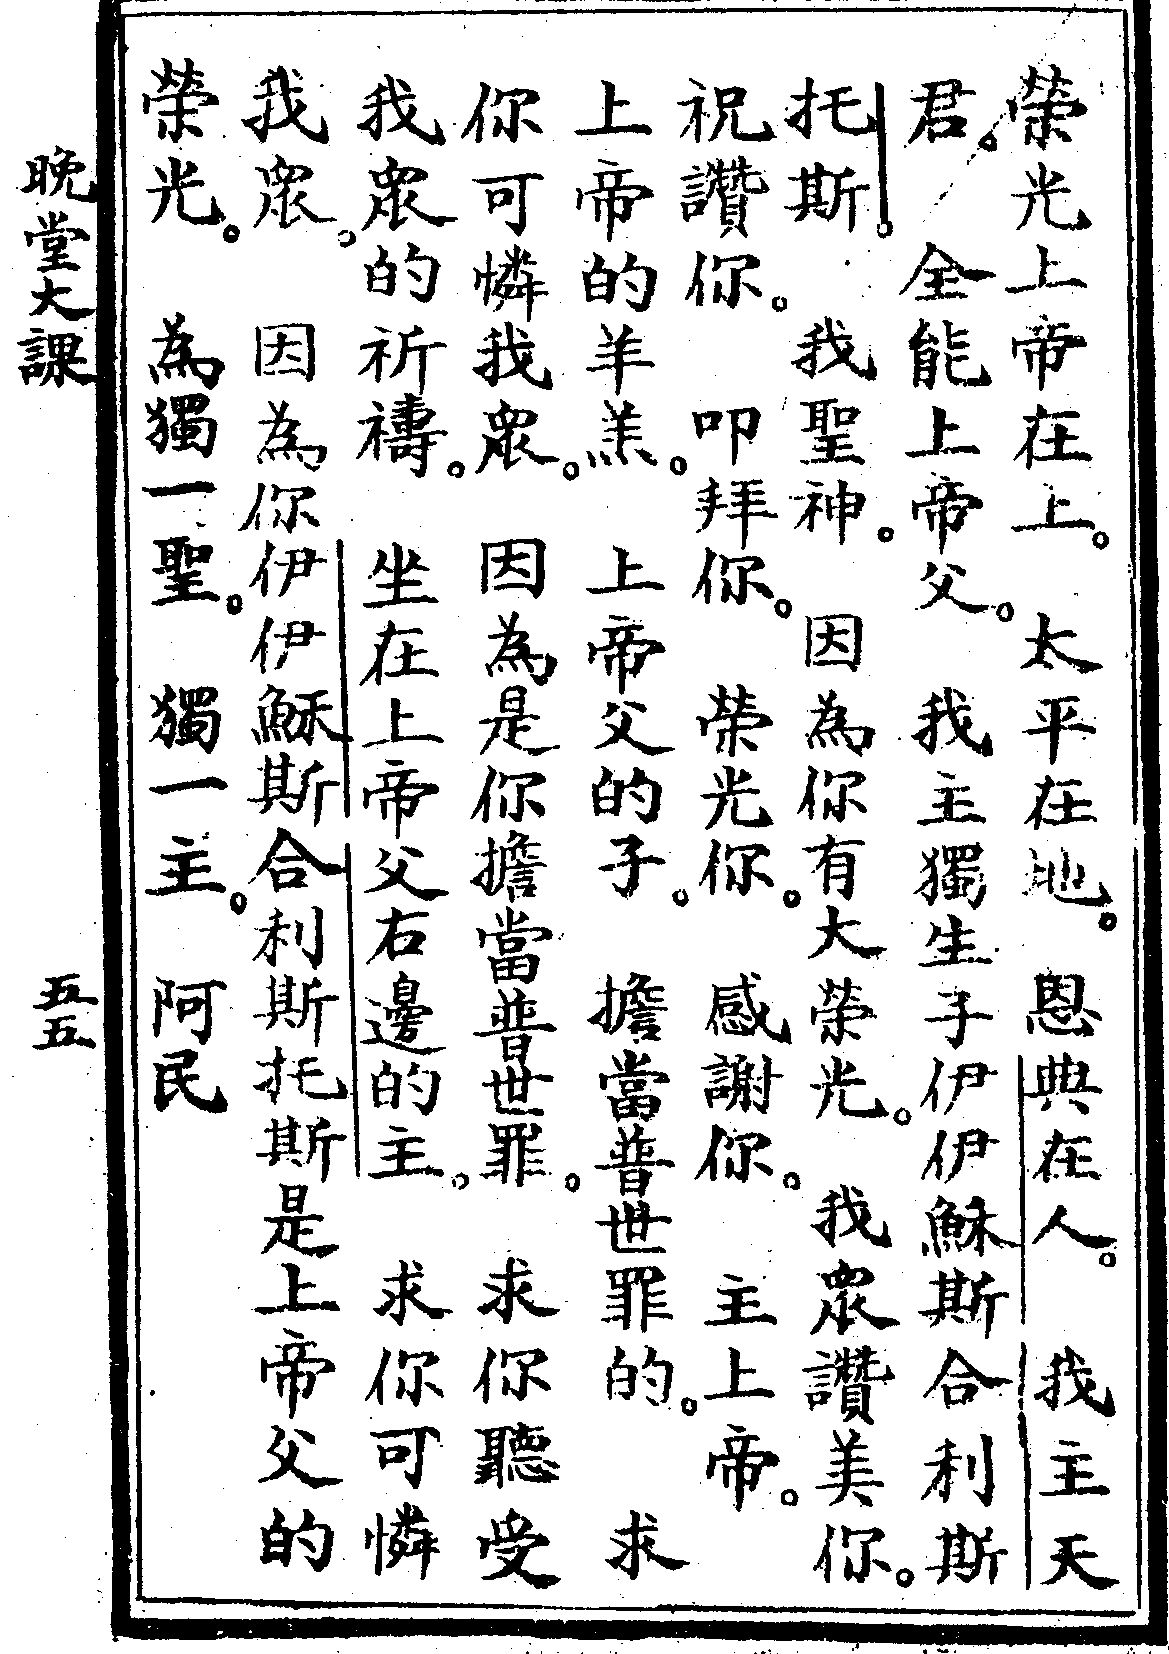 榮光上帝在上。太平在地。恩典在人。我主天
君。全能上帝父。我主獨生子伊伊穌斯合利斯
托斯。我聖神。因為你有大榮光。我眾讚美你。
祝讚你。叩拜你。榮光你。感謝你。主上帝。
上帝的羊羔。上帝父的子。擔當普世罪的。求
你可憐我眾。因為是你擔當普世罪。求你聽受
我眾的祈禱。坐在上帝父右邊的主。求你可憐
我眾。因為你伊伊穌斯合利斯托斯是上帝父的
榮光。為獨一聖。獨一主。阿民
晚堂大課
五五